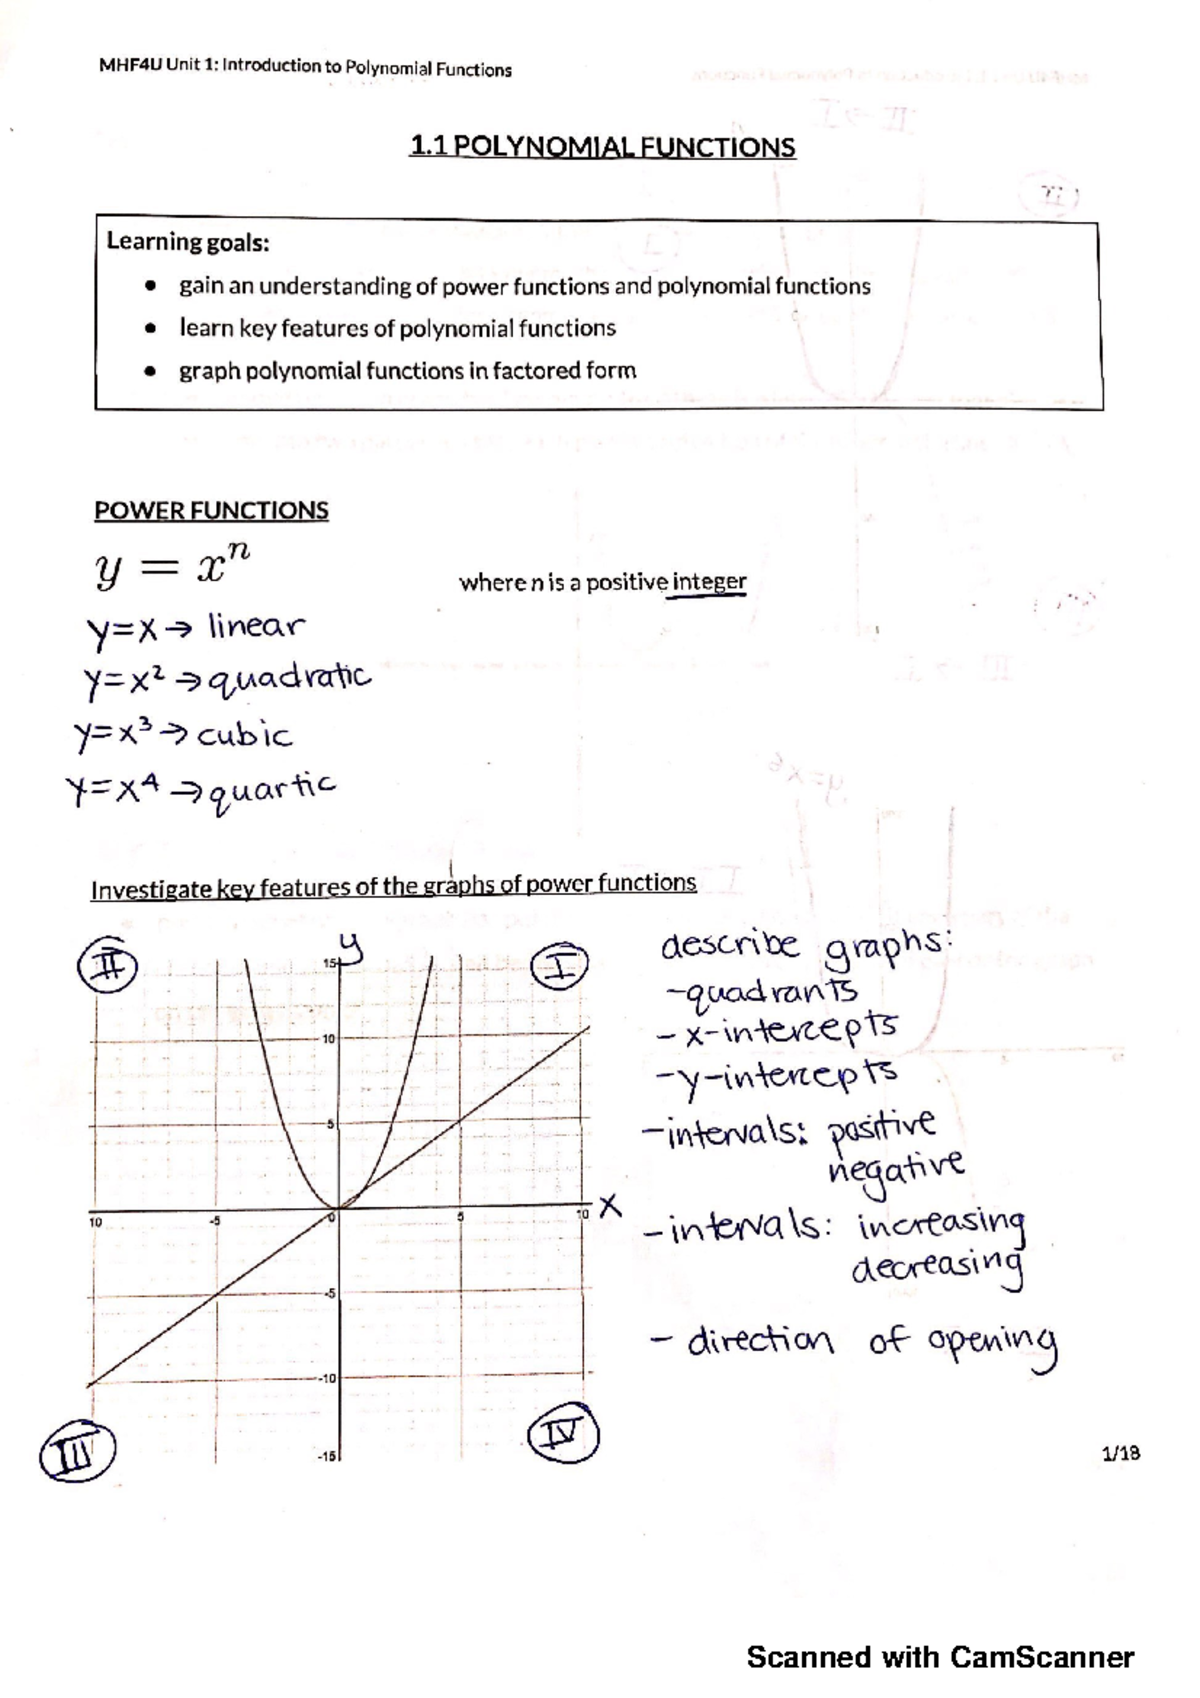 MHF4U Unit 1: Introduction to Polynomial Functions
1.1 POLYNOMIAL FUNCTIONS
Learning goals:
• gain an understanding of power functions and polynomial functions
• learn key features of polynomial functions
• graph polynomial functions in factored form
POWER FUNCTIONS
y = xⁿ where n is a positive integer
y=x → linear
y=x² → quadratic
y=x³ → cubic
y=x⁴ → quartic
Investigate key features of the graphs of power functions
II
y
I
15
10
5
10 -5 0 5 10 x
-5
-10
-15
III
IV
describe graphs:
-quadrants
- x-intercepts
-y-intercepts
-intervals: positive
negative
-intervals: increasing
decreasing
- direction of opening
1/18
Scanned with CamScanner